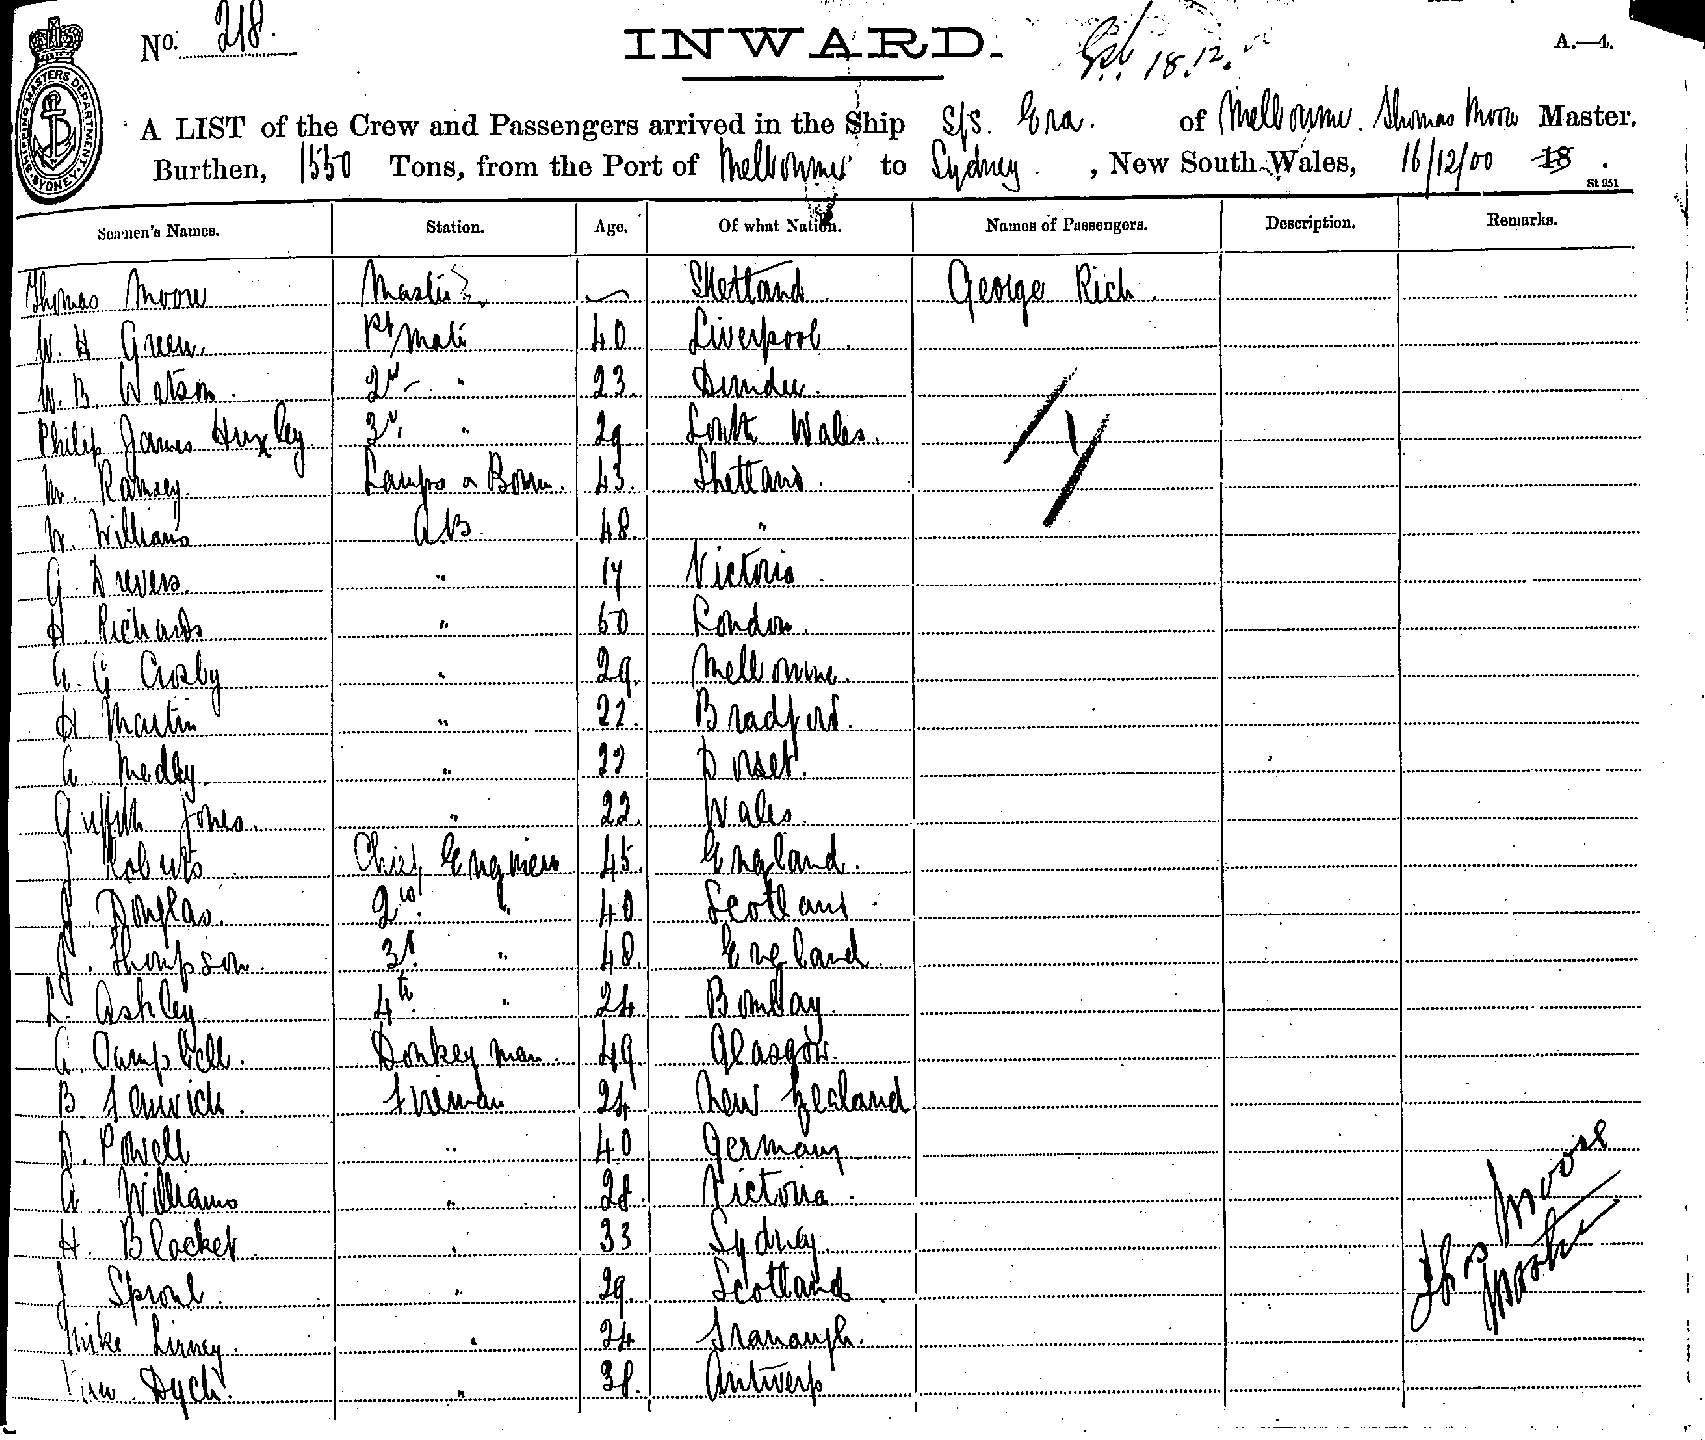 No. 218.
INWARD.
18.12.
A.—4.
SHIPPING MASTERS DEPARTMENT SYDNEY
A LIST of the Crew and Passengers arrived in the Ship S/S. Era. of Melbourne. Thomas Moore Master,
Burthen, 1550 Tons, from the Port of Melbourne to Sydney, New South Wales, 16/12/00 18.
St 951
Seamen's Names. Station. Age. Of what Nation. Names of Passengers. Description. Remarks.
Thomas Moore Master Shetland George Rich.
W. H Green. 1st Mate 40 Liverpool
W. B. Watson. 2nd " 23. Dundee.
Philip James Huxley 3rd " 29 South Wales.
M. Ramsey. Lamps & Bosun. 43. Shetland.
W. Williams A.B. 48. "
G Drevers. " 17 Victoria
H Richards " 60 London.
A. G Crosby " 29. Melbourne.
H Martin " 22. Bradford.
A. Medley. " 22 Dorset.
Griffith Jones. " 22. Wales.
J Roberts Chief Engineer 45. England.
J. Douglas. 2nd " 40 Scotland
J. Thompson. 3rd " 48. England
L. Ashley 4th " 24 Bombay.
A. Campbell. Donkeyman. 49 Glasgow.
B Fenwick. Fireman 24 New Zealand
D. Powell " 40 Germany
A. Williams " 28. Victoria.
H. Blacket. " 33 Sydney.
J Sproul. " 29. Scotland
Mike " 24
Dych. " 38. Antwerp
Thos Moore
Master